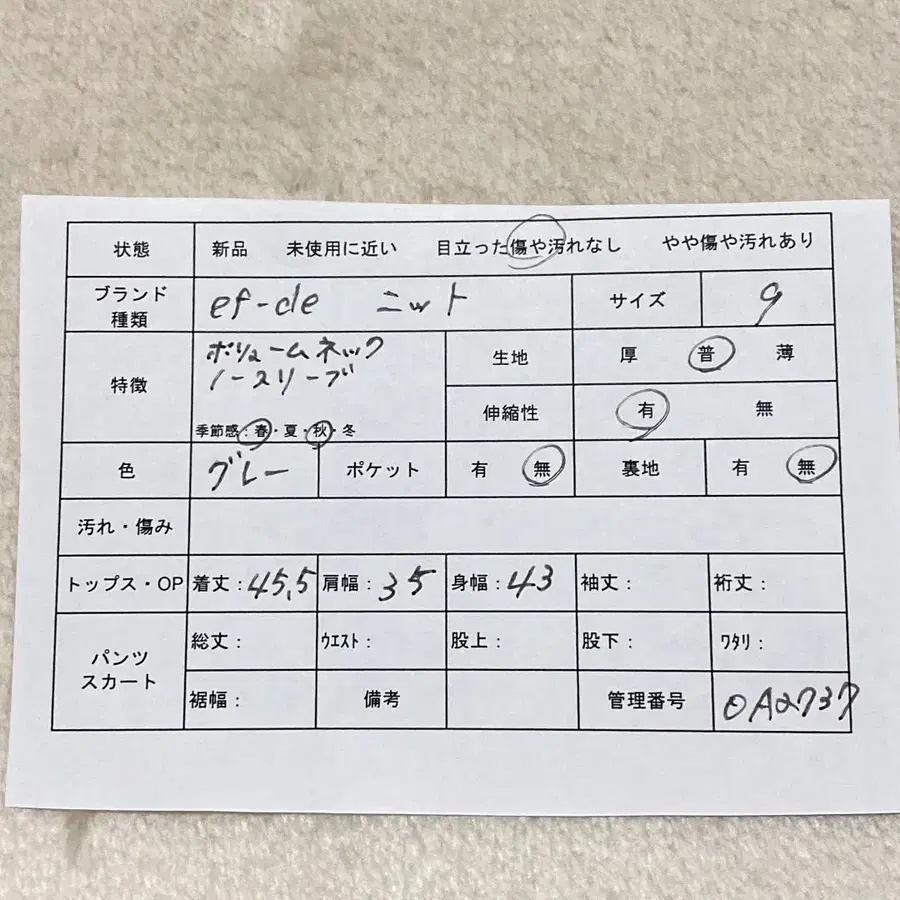 状態 新品 未使用に近い 目立った傷や汚れなし やや傷や汚れあり
ブランド種類 ef-de ニット サイズ 9
特徴 ボリュームネック
ノースリーブ
季節感：春・夏・秋・冬
生地 厚 普 薄
伸縮性 有 無
色 グレー ポケット 有 無 裏地 有 無
汚れ・傷み
トップス・OP 着丈：45.5 肩幅：35 身幅：43 袖丈： 裄丈：
パンツ
スカート
総丈： ｳｴｽﾄ： 股上： 股下： ﾜﾀﾘ：
裾幅： 備考 管理番号 OA2737